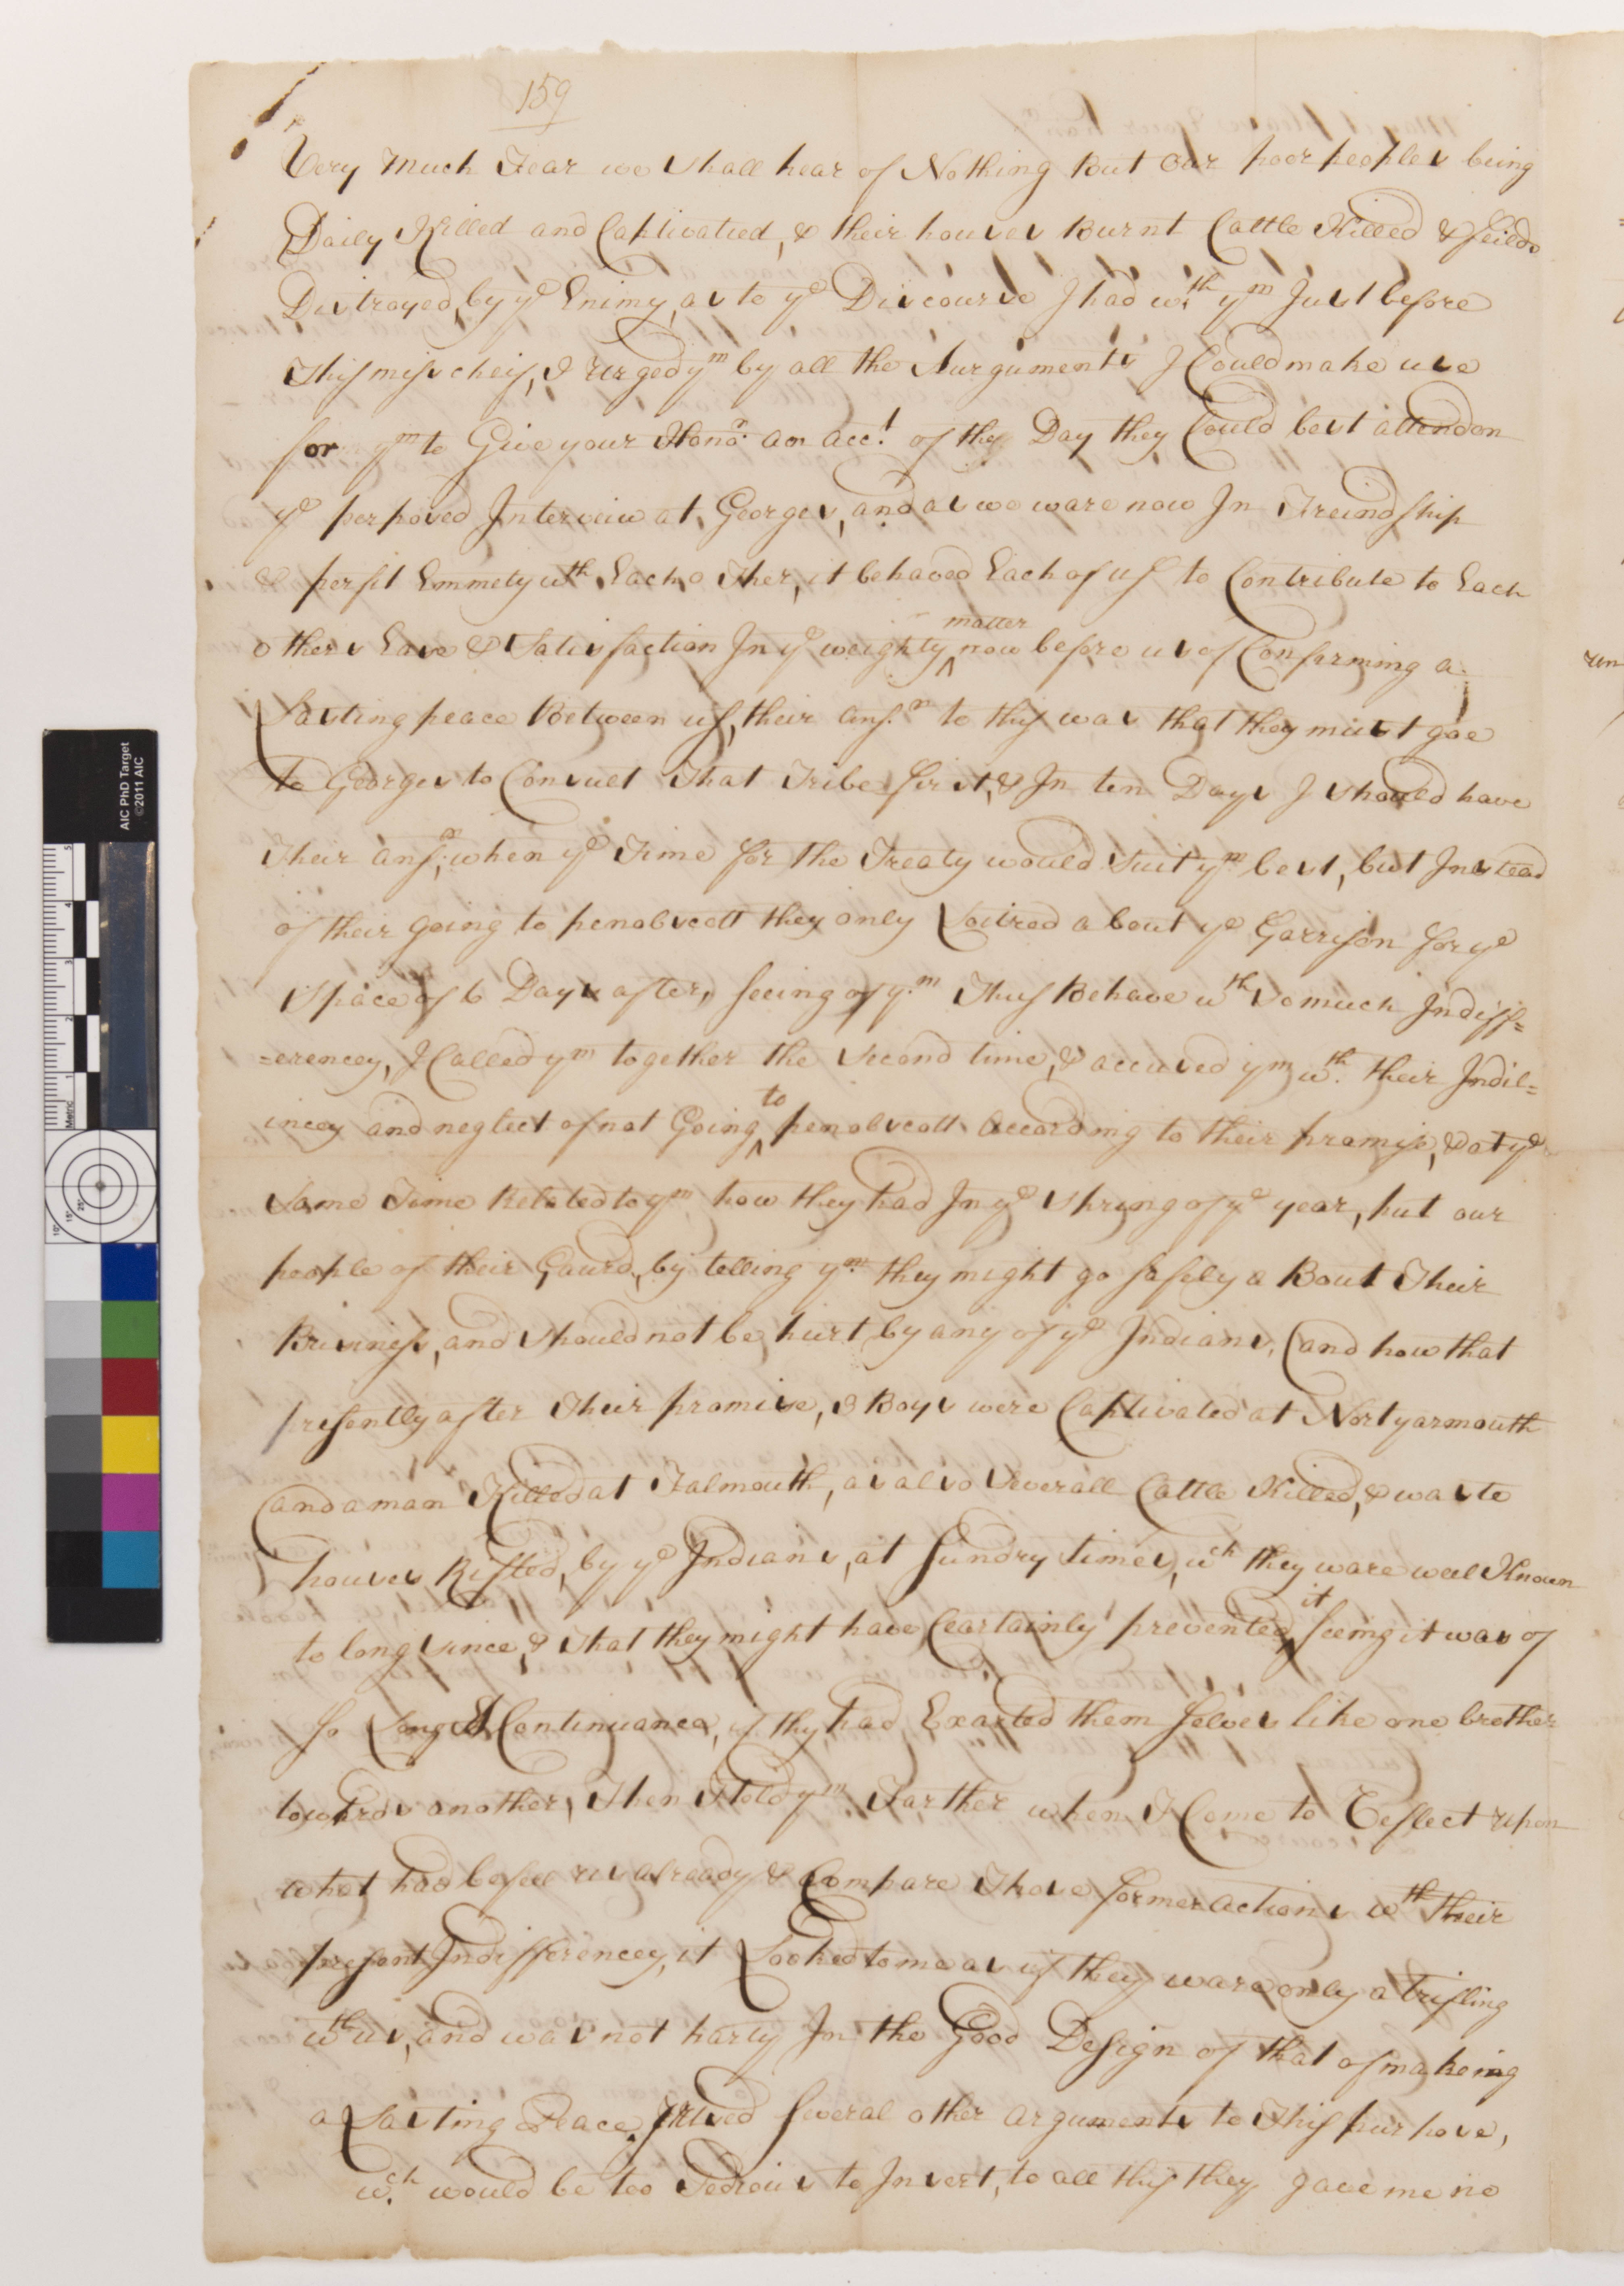 159
Very Much Fear we shall hear of Nothing But Our poor peoples being
Daily Killed and Captivatied, & their houses Burnt Cattle Killed & feilds
Distroyed, by ye Enimy, as to ye Discourse I had wth ym Just before
This mischeif, I urged ym by all the Aurguments I Could make use
for ym to Give your Honor an acct of the Day they Could best attend on
ye perposed Interveiw at Georges, and as we ware now In Freindship
& perfit Emmety wth Each other, it behaved Each of us to Contribute to Each
others Ease & Satisfaction In ye weighty matter now before us of Confirming a
Lasting peace Between us, their ansr to this was that they must goe
to Georges to Consult That Tribe first, & In ten Days I should have
Their ansr, when ye Time for the Treaty would Suit ym best, but Instead
of their going to penobscott they only Loitred about ye Garrison for ye
space of 6 Days after, seeing of ym Thus Behave wth so much Indiff=
=erencey, I Called ym together the second time, & accused ym wth their Indil=
incey and neglect of not Going to penobscott According to their promise, & at ye
same Time Related to ym how they had In ye spring of ye year, put our
people of their Gaurd, by telling ym they might go safely a Bout Their
Business, and should not be hurt by any of ye Indians, (and how that
presently after Their promise, 3 Boys were Captivated at Nortyarmouth
and a man Killed at Falmouth, as also severall Cattle Killed, & waste
houses Rifled, by ye Indians, at sundry times), wch they ware well Known
to long since, & that they might have Ceartainly prevented it seeing it was of
so Long A Continuance, if thy had Exarted them selves like one brother
towards another, Then I told ym Farther when I Come to Reflect upon
what had befell us already & Compare Those former actions wth their
present Indifferencey, it Looked to me as if they ware only a trifling
wth us, and was not harty In the Good Design of that of makeing
a Lasting Peace, I Used several other arguments to This purpose,
wch would be too Tedious to Insert, to all this they gave me no